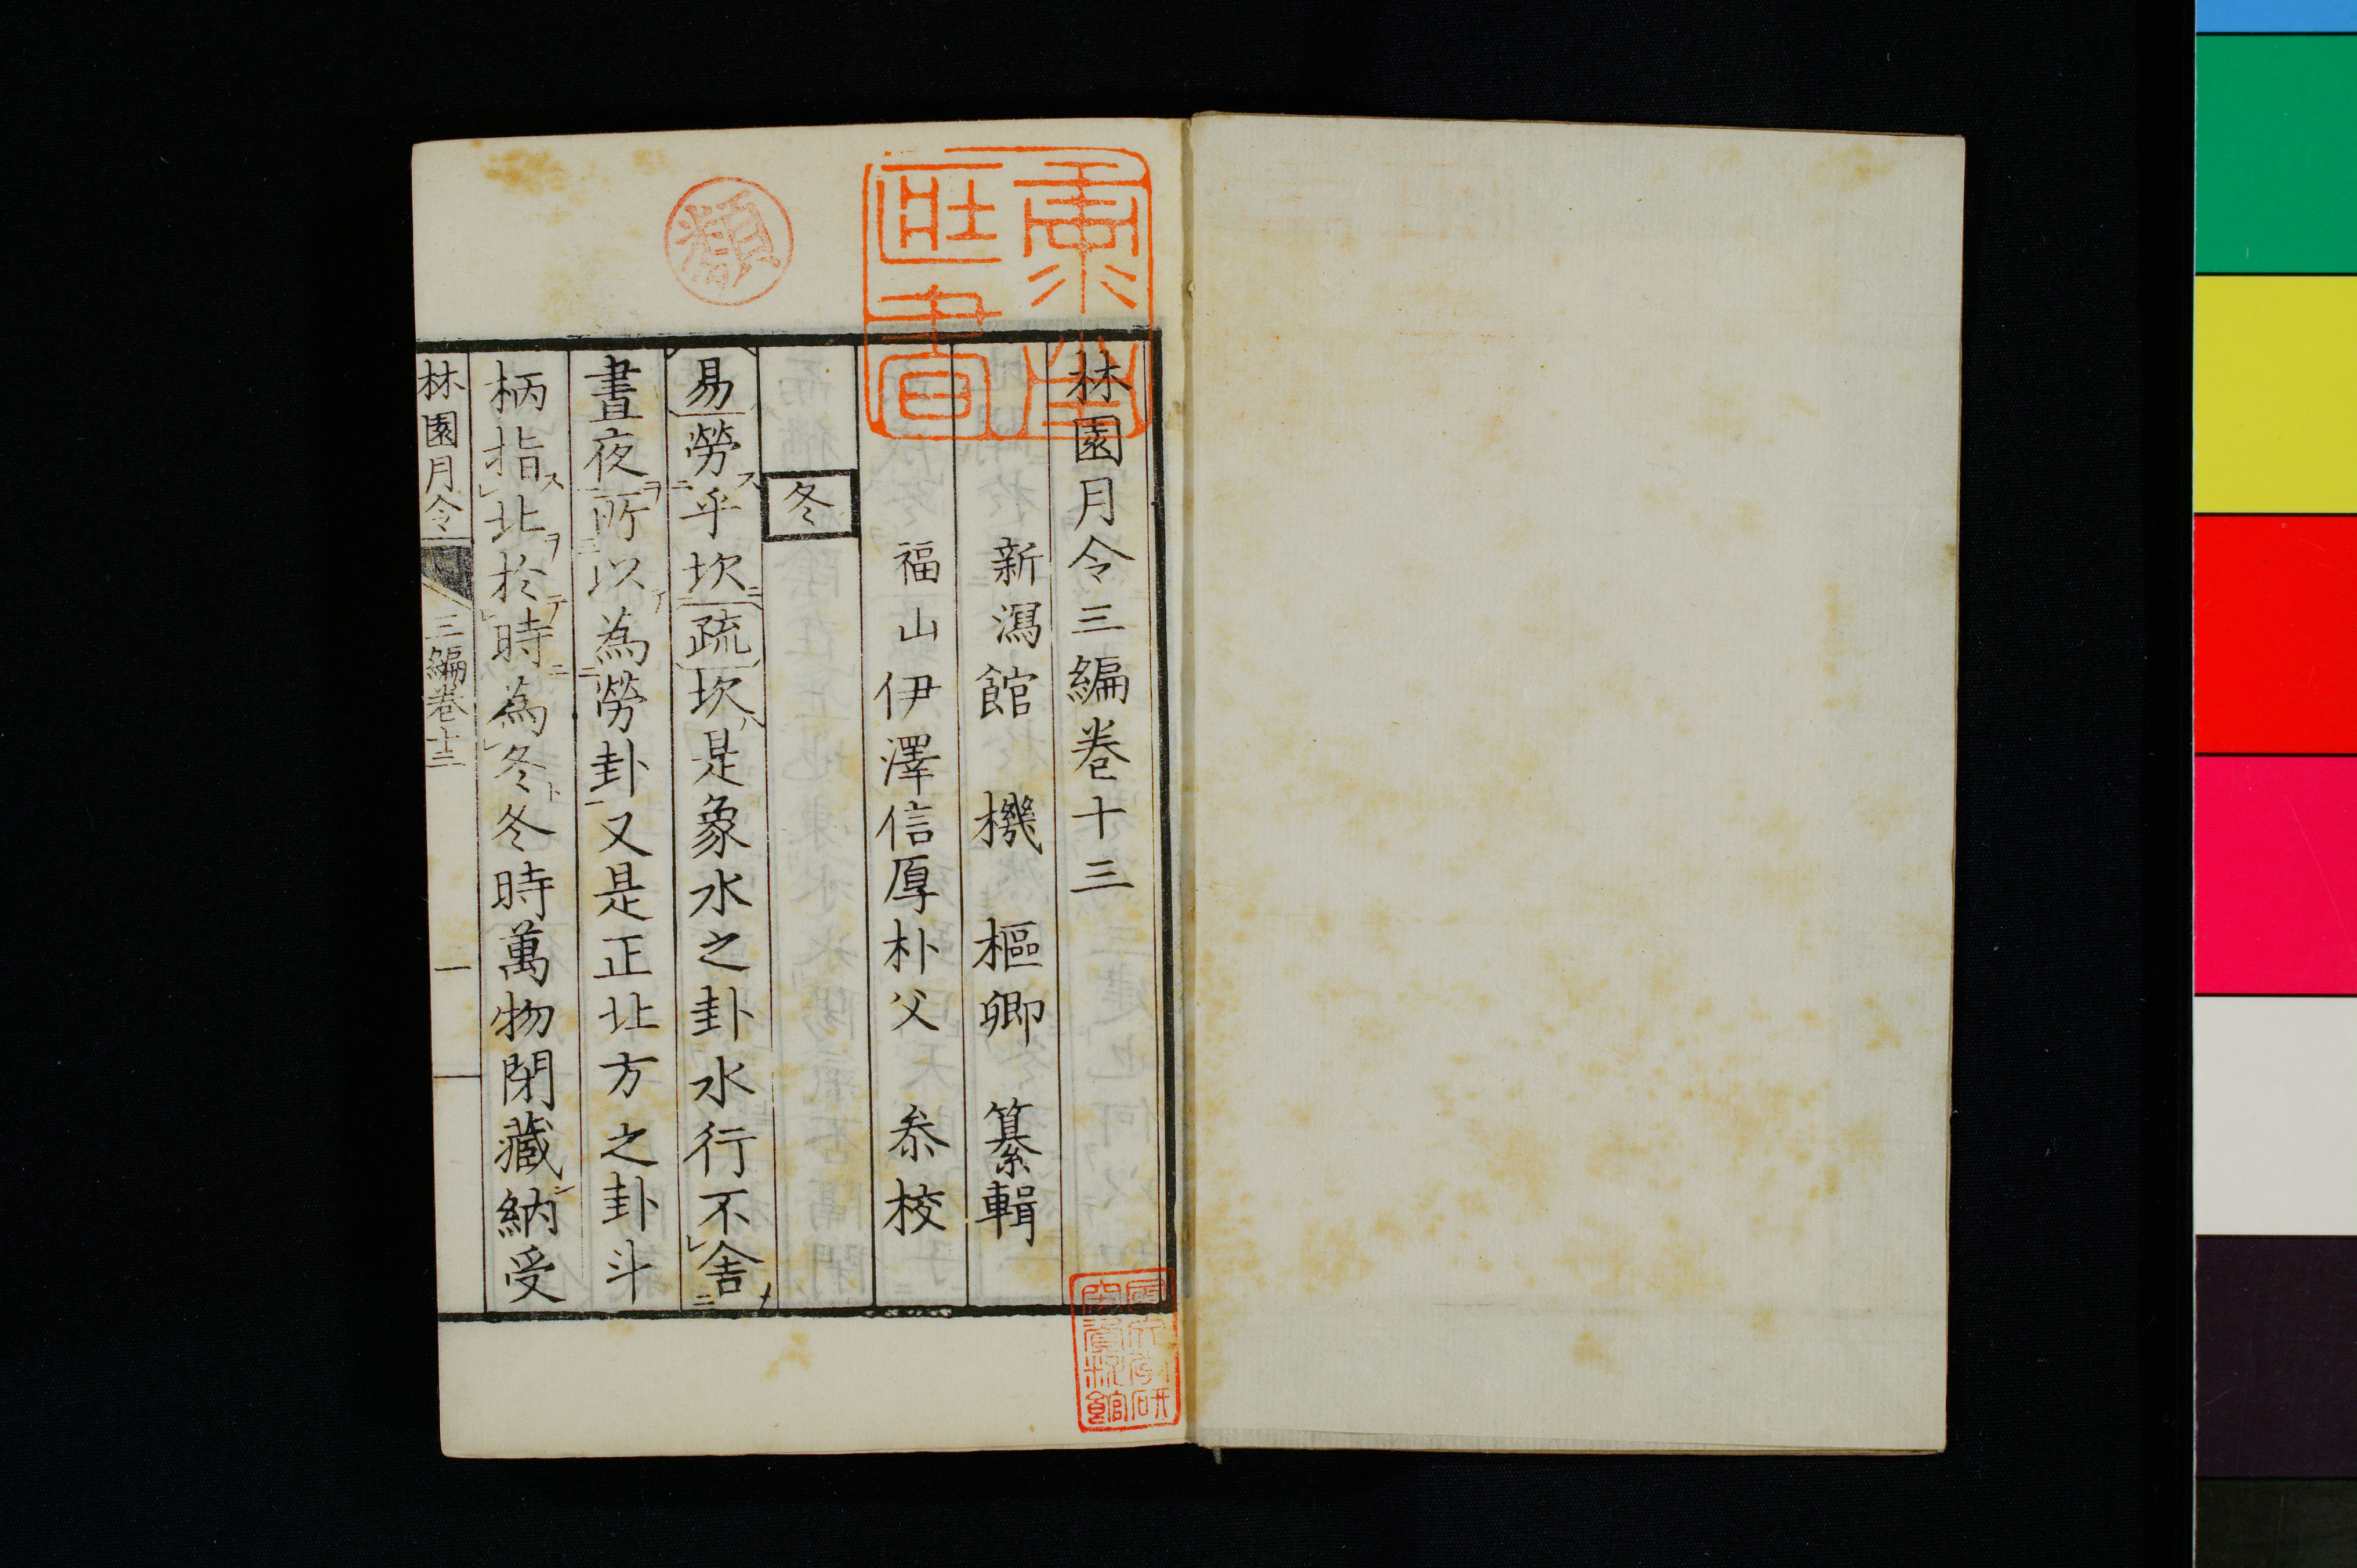 林園月令三編卷十三
新瀉館 機 樞卿 纂輯
福山伊澤信厚朴父 叅校
冬
易勞乎坎疏坎是象水之卦水行不舍
晝夜所以為勞卦又是正北方之卦斗
柄指北於時為冬冬時萬物閉藏納受
林園月令 三編卷十三 一
類
國文學研究資料館